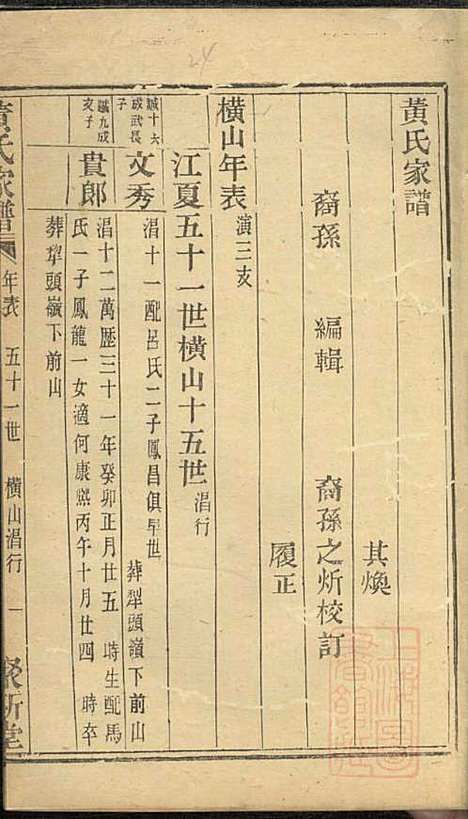 24
黃氏家譜
其煥
裔孫 編輯 裔孫之炘校訂
履正
橫山年表 演三支
江夏五十一世橫山十五世 淐行
文秀 淐十一配呂氏二子鳳昌俱早世 葬犁頭嶺下前山
貴郎 淐十二萬歷三十一年癸卯正月廿五 時生配馬
氏一子鳳龍一女適何康熙丙午十月廿四 時卒
葬犁頭嶺下前山
黃氏家譜 年表 五十一世 橫山淐行 一